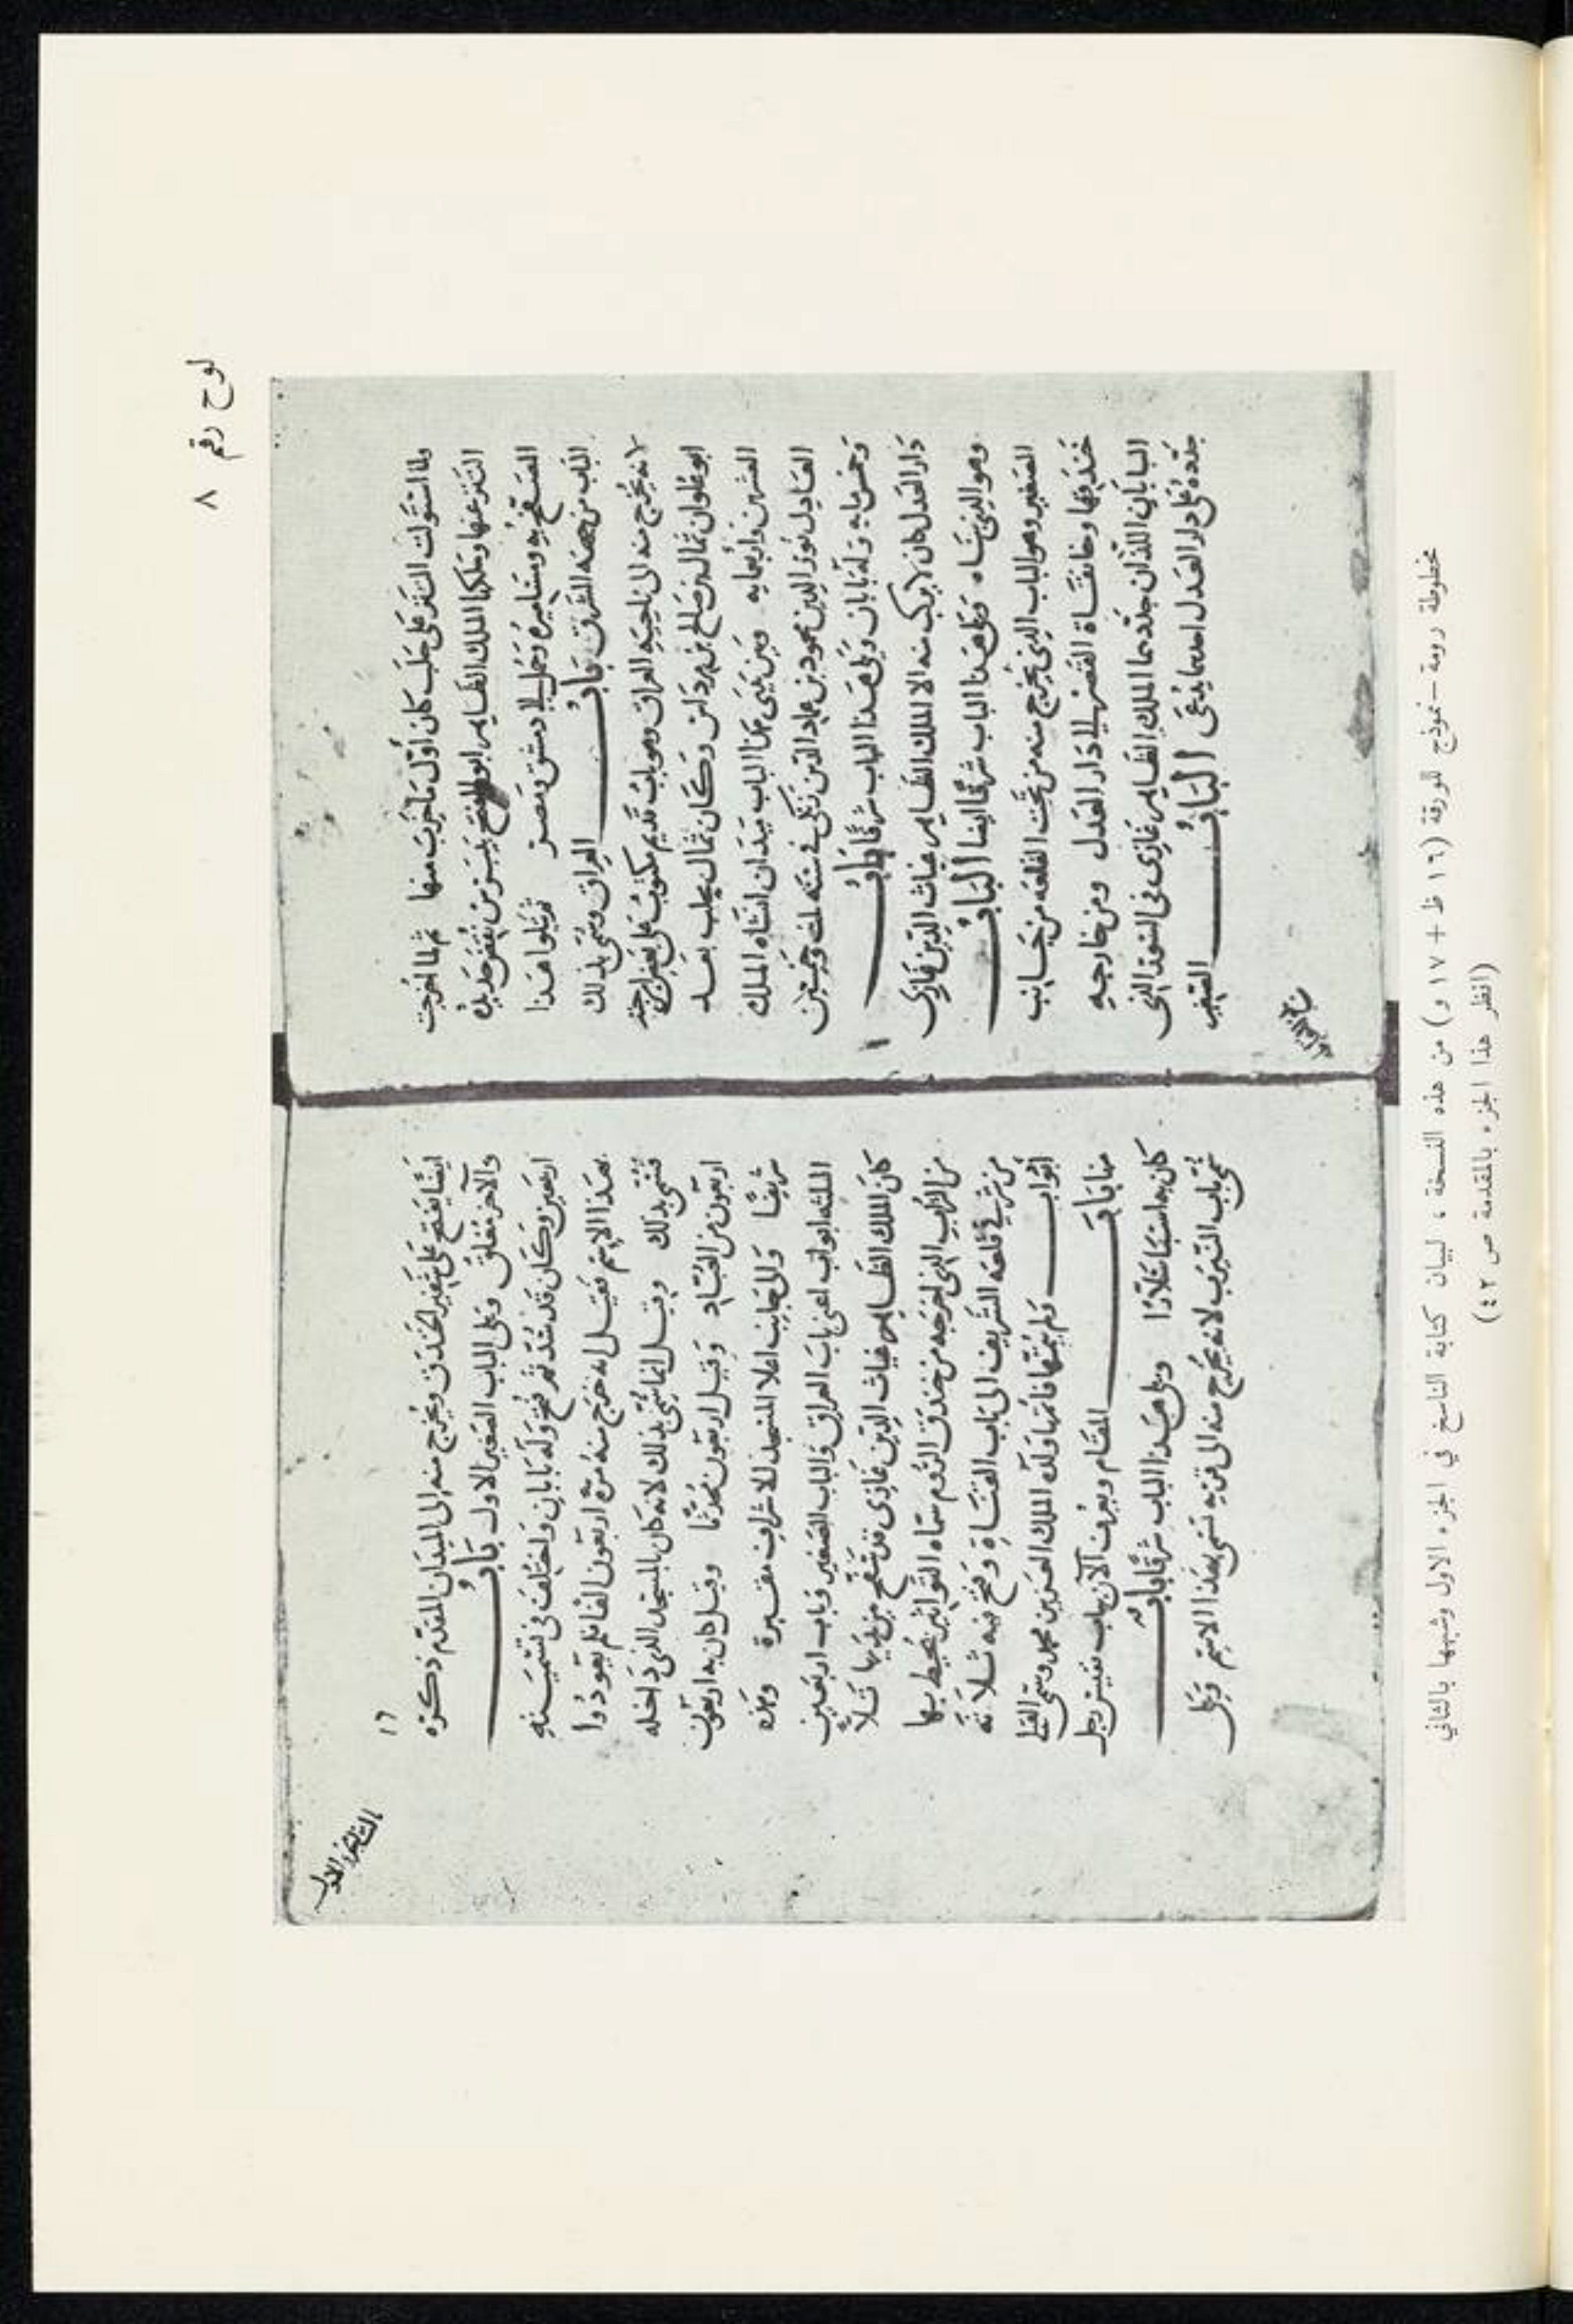 لوح رقم ٨
ولما استولت التتر على حلب كان اول ما خرب منها ثم لما اخرجت
التتر عنها وملكها الملك الظاهر ابو الفتح بيبرس
ومساميره وحمل الى دمشق ومصر هذا
الباب من جهة الشرق باب العراق وسمي بذلك
لانه يخرج منه الى ناحية العراق وهو باب قديم مكتوب على بعض ابرجته
ابو علوان ثمال بن صالح بن مرداس وكان ثمال بحلب بعد
العشرين واربعمايه وبين يدي هذا الباب ميدان انشاه الملك
العادل نور الدين محمود بن عماد الدين زنكي في سنة ثلث وخمسين
وخمس مايه وله بابان ويلي هذا الباب شرقا باب
دار العدل كان لا يركب منه الا الملك الظاهر غياث الدين غازي
وهو الذي بناه ويلي هذا الباب شرقا ايضا الباب
الصغير وهو الباب الذي يخرج منه من تحت القلعه من جانب
خندقها وخانقاة القصر الى دار العدل ومن خارجه
البابان اللذان جددهما الملك الظاهر غازي في السور الذي
جدده على دار العدل احدهما يدعى الباب الصغير
١٦
ايضا يفتح على شفير الخندق ويخرج منه الى الميدان المقدم ذكره
والآخر مغلق ويلي الباب الصغير الاول باب
اربعين وكان قد سد ثم فتح وله بابان واختلف في تسميته
بهذا الاسم فقيل انه خرج منه مرة اربعون الفا فلم يعودوا
فسمي بذلك وقيل انما سمي بذلك لانه كان بالمسجد الذي داخله
اربعون من العباد وقيل اربعون محدثا وقيل كان به اربعون
شريفا والى جانب اعلا المسجد للاشراف مقبرة وهذه
الثلثه ابواب اعني باب العراق والباب الصغير وباب اربعين
كان الملك الظاهر غياث الدين غازي قد سفح بين يديها تلا
من التراب الذي اخرجه من خندق الروم سماه التواتير يحيط بها
من شرقي قلعه الشريف الى باب القناة وفتح فيه ثلاثة
ابواب ولم يتمها فاتمها ولده الملك العزيز محمد وسمى القبلي
منها باب المقام ويعرف الآن بباب نفيس رجل
كان به اسباسلارا ويلي هذا الباب شرقا باب
سمي باب النيرب لانه يخرج منه الى قريه تسمى بهذا الاسم ويلي
مخطوطة رومة – نموذج للورقة (١٦ ظ + ١٧ و) من هذه النسخة ، لبيان كتابة الناسخ في الجزء الاول وشبهها بالثاني
(انظر هذا الجزء بالمقدمة ص ٤٢)